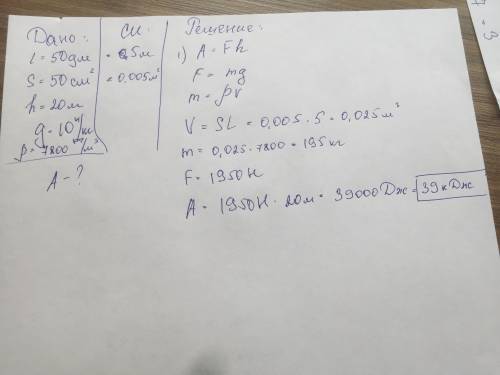 Дано:
l = 50дм
S = 50см²
h = 20м
g = 10 н/кг
ρ = 7800 кг/м³
A - ?
СИ:
= 5м
= 0,005м²
Решение:
1) A = Fh
F = mg
m = ρV
V = SL = 0,005 · 5 = 0,025м³
m = 0,025 · 7800 = 195кг
F = 1950Н
A = 1950Н · 20м = 39000Дж = 39кДж